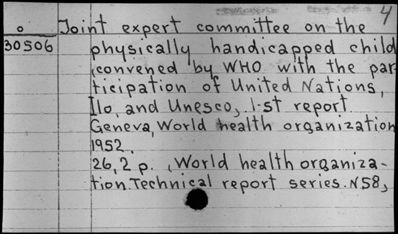 4
o
30506
Joint expert committee on the
physically handicapped child
, convened by WHO with the par-
ticipation of United Nations,
Ilo, and Unesco, 1-st report
Geneva, World health organization
1952.
26,2 p. , World health organiza-
tion. Technical report series. N58,